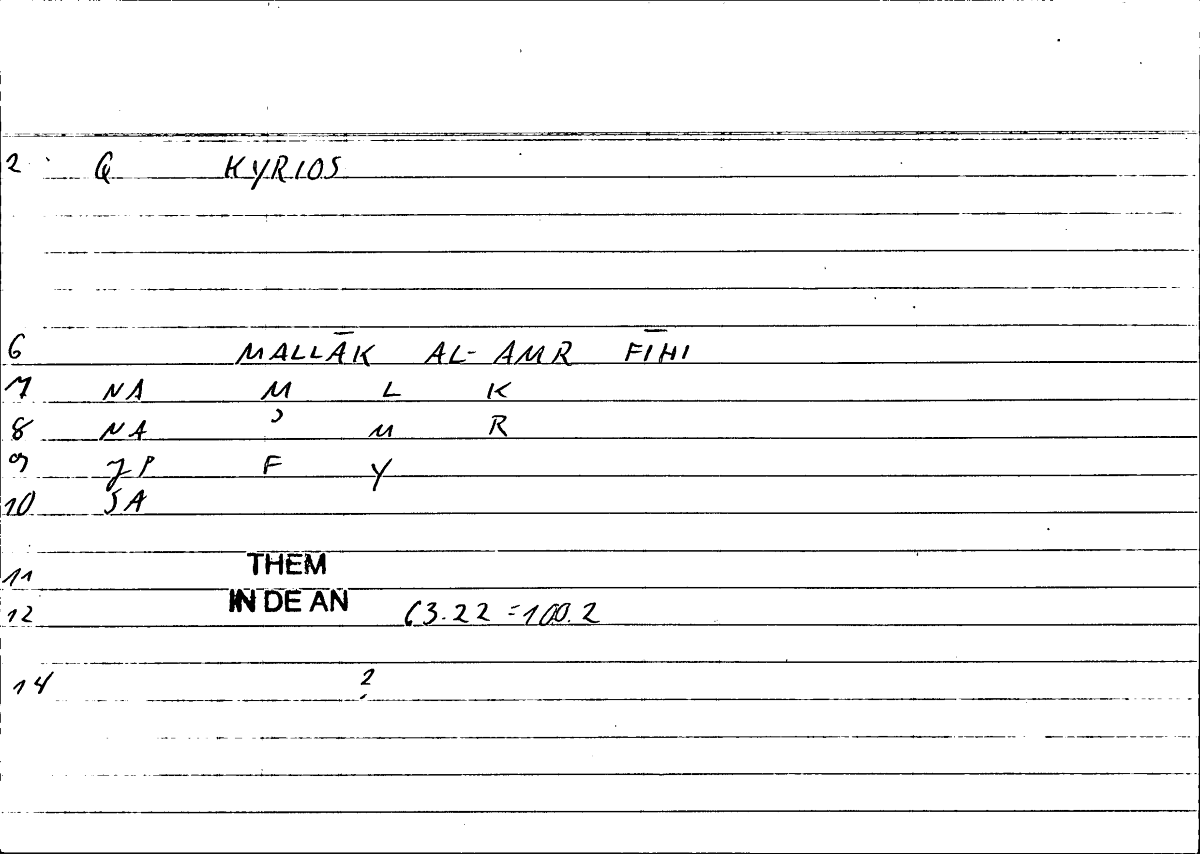 2 Q KYRIOS
6 MALLĀK AL-AMR FĪHI
7 NA M L K
8 NA ʾ M R
9 JP F Y
10 SA
11 THEM
12 IN DE AN 63.22 = 100.2
14 ?